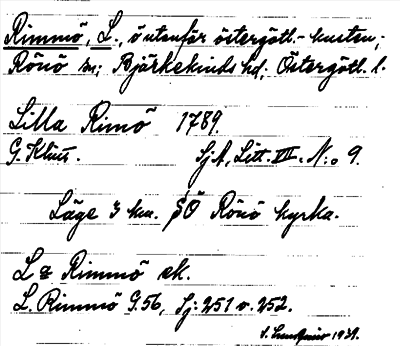 Rimmö, L., ö utanför östergötl.- kusten,
Rönö sn; Björkekinds hd; Östergötl. l.
Lilla Rimö 1789.
G. Klint. Sj.A, Litt. VIII. N:o 9.
Läge 3 km. SÖ Rönö kyrka.
L & Rimmö ek.
L. Rimmö G.56, Sj: 251 v. 252.
1931.